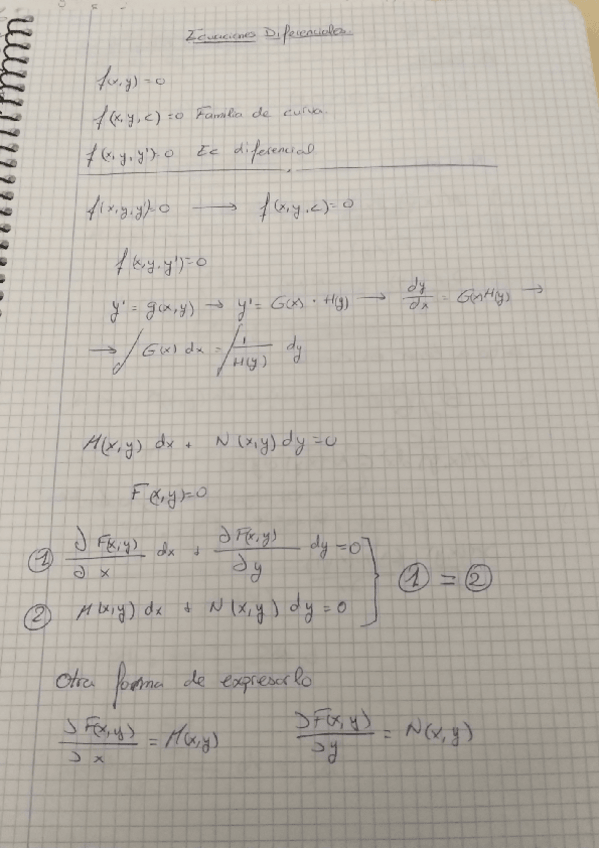 Ecuaciones Diferenciales
f(x,y)=0
f(x,y,c)=0 Familia de curva
f(x,y,y')=0 Ec diferencial
f(x,y,y')=0 → f(x,y,c)=0
f(x,y,y')=0
y' = g(x,y) → y' = G(x) · H(y) → dy/dx = G(x)H(y) →
→ ∫ G(x) dx = ∫ 1/H(y) dy
M(x,y) dx + N(x,y) dy = 0
F(x,y)=0
① ∂F(x,y)/∂x dx + ∂F(x,y)/∂y dy = 0 } ① = ②
② M(x,y) dx + N(x,y) dy = 0
Otra forma de expresarlo
∂F(x,y)/∂x = M(x,y) ∂F(x,y)/∂y = N(x,y)